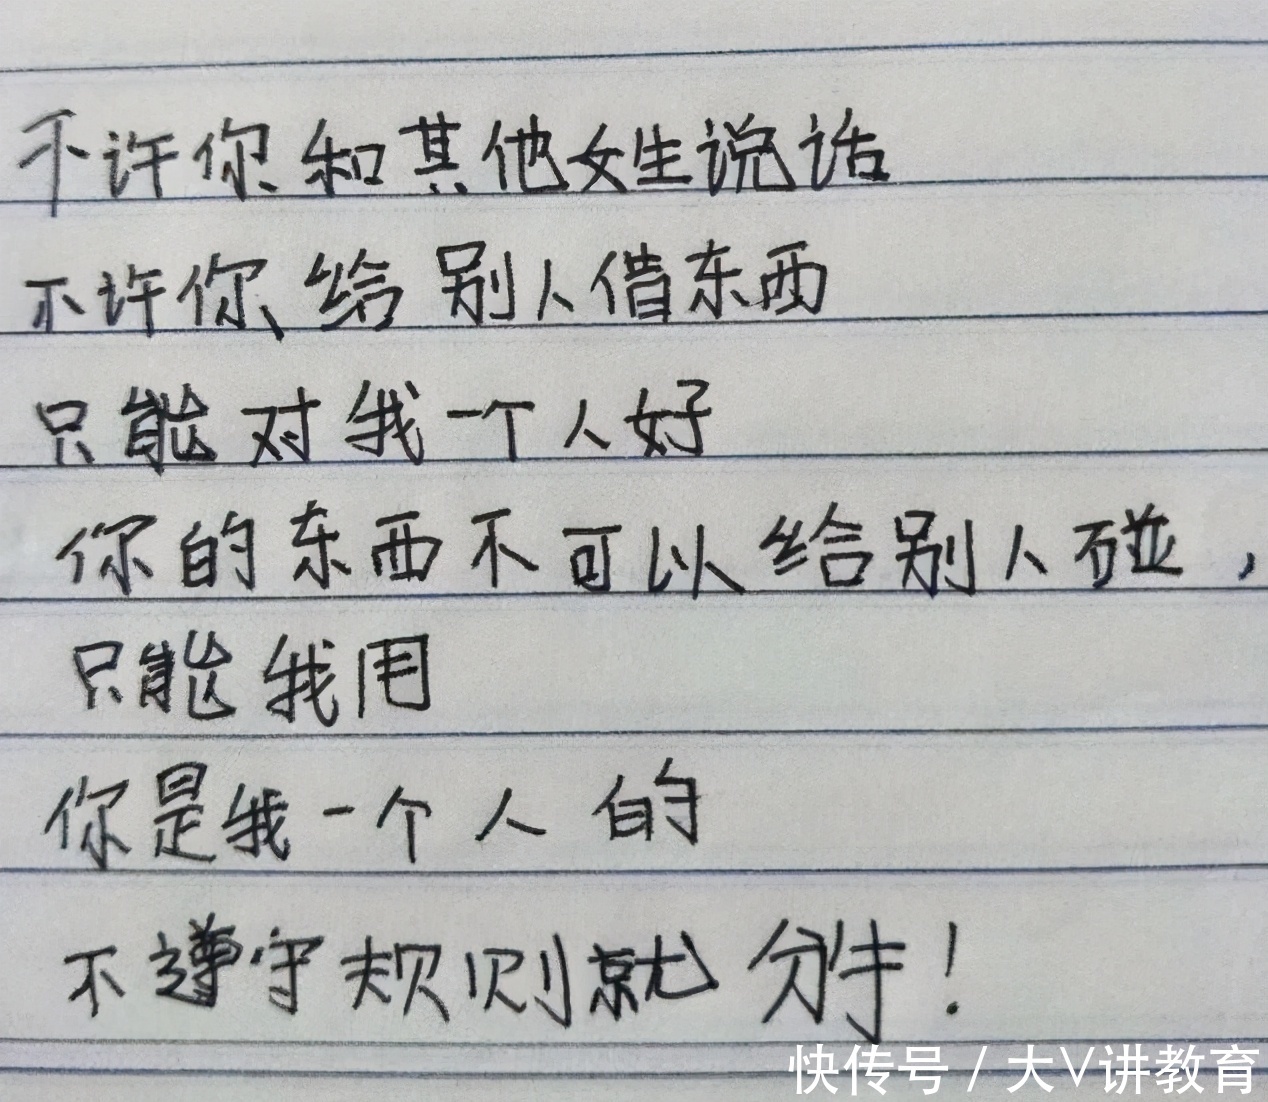 不许你和其他女生说话
不许你给别人借东西
只能对我一个人好
你的东西不可以给别人碰，
只能我用
你是我一个人的
不遵守规则就分手！
快传号/大V讲教育